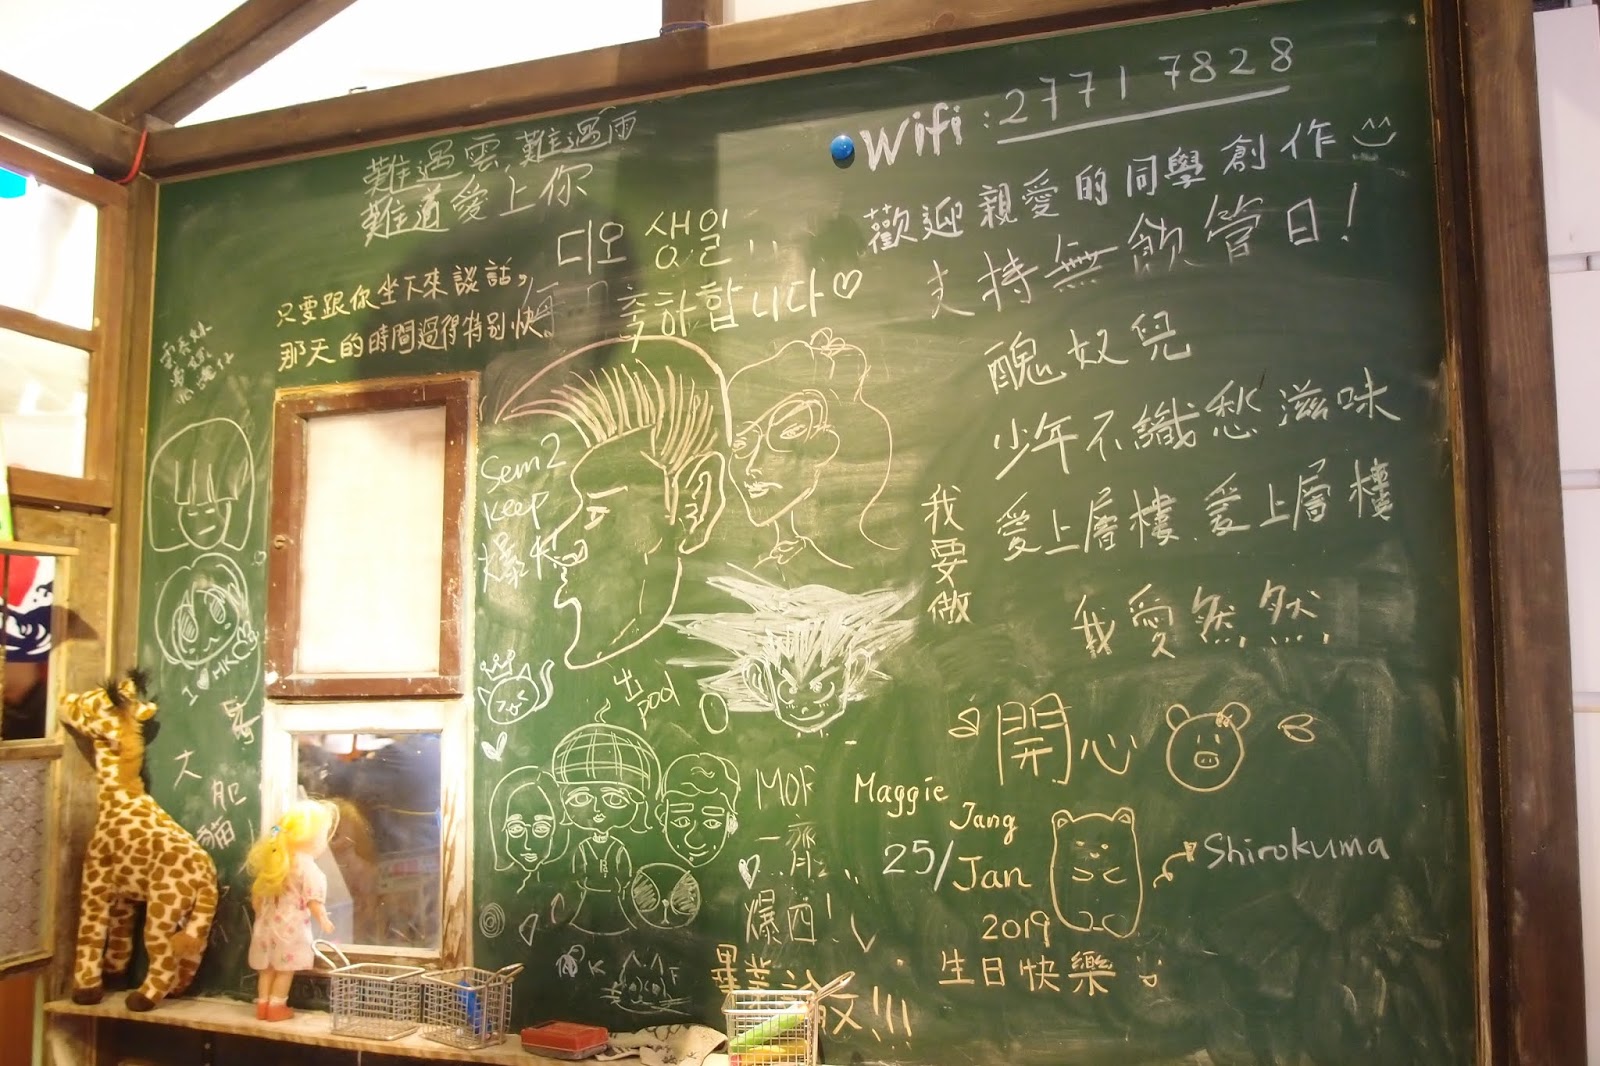 Wifi : 27717828
歡迎親愛的同學創作
支持無飲管日!
難過雲,難過雨
難道愛上你
디오 생일
축하합니다
只要跟你坐下來談話,
那天的時間過得特別快。
醜奴兒
少年不識愁滋味
愛上層樓.愛上層樓
我要做
我愛然然
Sem 2
keep
爆4
I ♡ HK
出pool
開心
大肥貓
MOF
一齊
爆四!
Maggie
Jang
25/Jan
2019
Shirokuma
生日快樂
畢業論文!!!